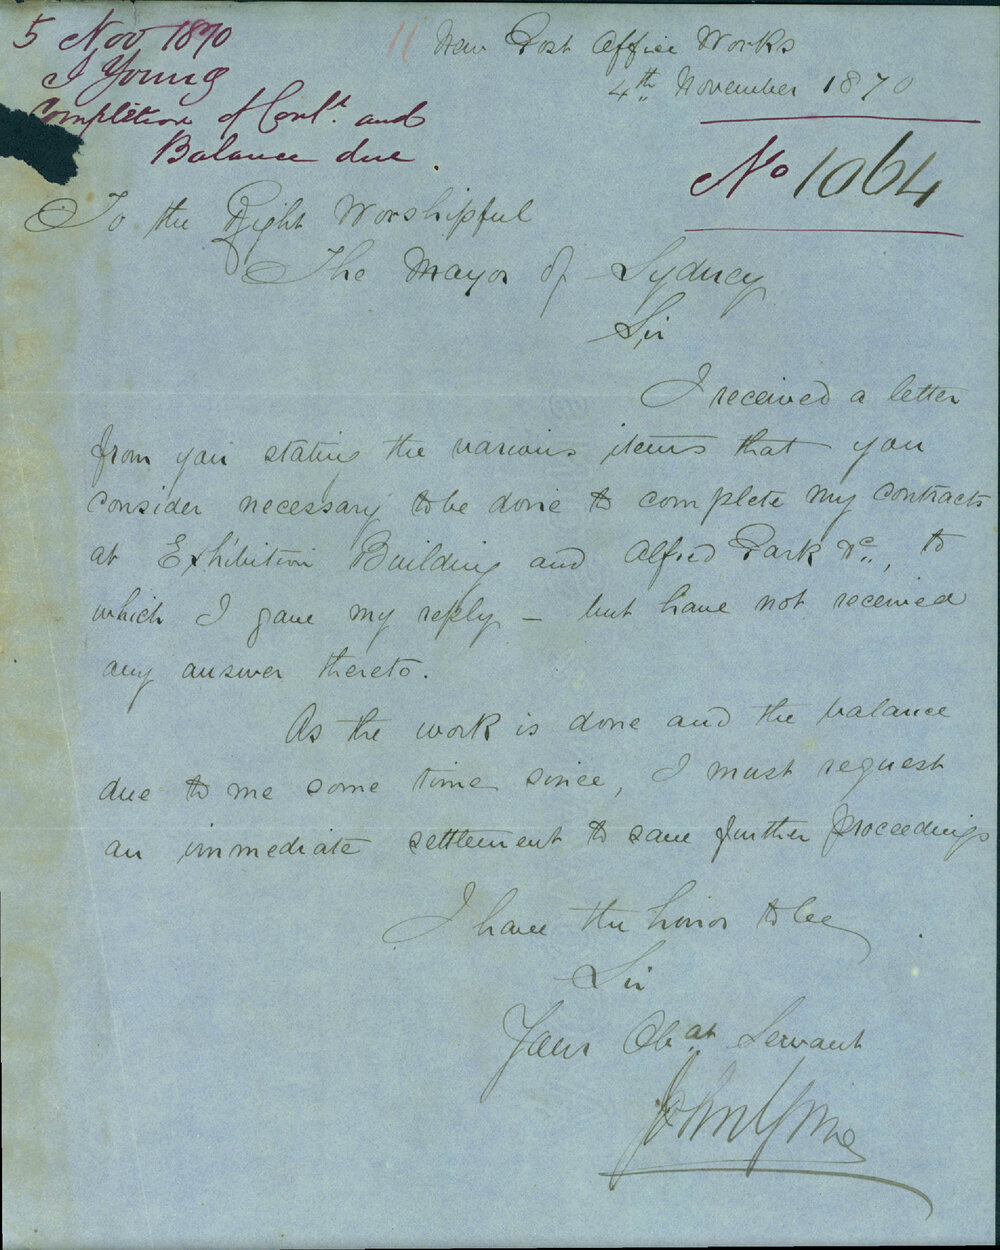 5 Nov 1870
J Young
Completion of Cont. and
Balance due.
11
New Post Office Works
4th November 1870
No 1064
To the Right Worshipful
The Mayor of Sydney
Sir
I received a letter
from you stating the various items that you
consider necessary to be done to complete my contracts
at Exhibition Building and Alfred Park &c., to
which I gave my reply – but have not received
any answer thereto.
As the work is done and the balance
due to me some time since, I must request
an immediate settlement to save further proceedings
I have the honor to be
Sir
Your Obt Servant
John Young